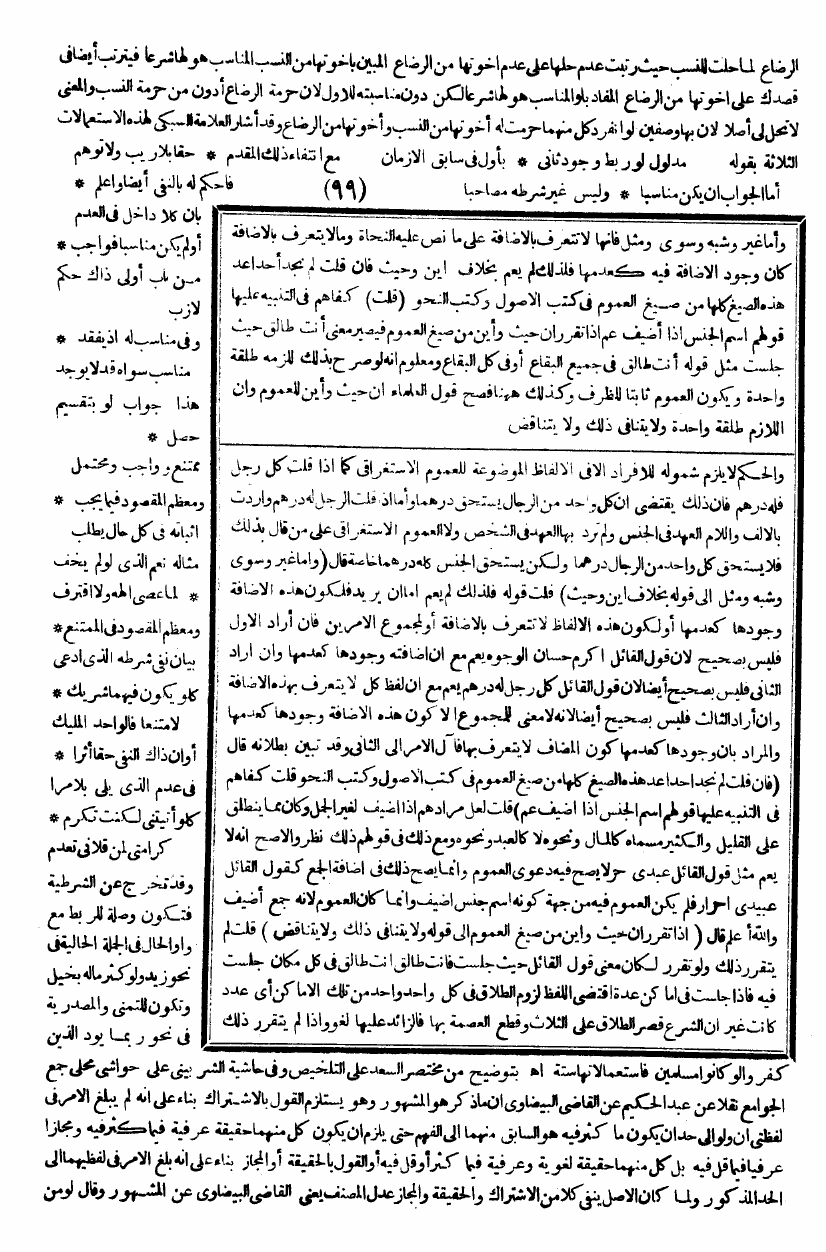 الرضاع لما حلت للنسب حيث رتبت عدم حلها على عدم اخوتها من الرضاع المبين باخوتها من النسب المناسب هو لها شرعا فيترتب أيضا فى
قصدك على اخوتها من الرضاع المفاد بلو المناسب هو لها شرعا لكن دون مناسبته للاول لان حرمة الرضاع أدون من حرمة النسب والمعنى
لا تحل لى أصلا لان بها وصفين لو انفرد كل منهما حرمت له أخوتها من النسب وأخوتها من الرضاع وقد أشار العلامة السبكى لهذه الاستعمالات
الثلاثة بقوله مدلول لو ربط وجود ثانى * بأول فى سابق الازمان مع انتفاء ذلك المقدم * حقا بلا ريب ولا توهم
أما الجواب ان يكن مناسبا * وليس غير شرطه مصاحبا (٩٩) فاحكم له بالنفى أيضا واعلم *
بان كلا داخل فى العدم
أو لم يكن مناسبا فواجب *
من باب أولى ذاك حكم
لازب
وفى مناسب له اذ يفقد *
مناسب سواه قد لا يوجد
هذا جواب لو بتقسيم
حصل *
ممتنع وواجب ومحتمل
ومعظم المقصود فيما يجب *
اثباته فى كل حال يطلب
مثاله نعم الذى لو لم يخف
* لما عصى الهه ولا اقترف
ومعظم المقصود فى الممتنع *
بيان نفى شرطه الذى ادعى
كلو يكون فيهما شريك *
لامتنعا فالواحد المليك
أو ان ذاك النفى حقا أثرا *
فى عدم الذى يلى بلا مرا
كلو أتيتنى لكنت تكرم *
كرامتى لمن قلانى تعدم
وقد تخرج عن الشرطية
فتكون وصلة للربط مع
واو الحال فى الجملة الحالية فى
نحو زيد ولو كثر ماله بخيل
وتكون للتمنى والمصدرية
فى نحو ربما يود الذين
وأما غير وشبه وسوى ومثل فانها لا تتعرف بالاضافة على ما نص عليه النحاة وما لا يتعرف بالاضافة
كان وجود الاضافة فيه كعدمها فلذلك لم يعم بخلاف اين وحيث فان قلت لم نجد أحدا عد
هذه الصيغ كلها من صيغ العموم فى كتب الاصول وكتب النحو (قلت) كفاهم فى التنبيه عليها
قولهم اسم الجنس اذا أضيف عم اذا تقرر ان حيث وأين من صيغ العموم فيصير معنى أنت طالق حيث
جلست مثل قوله أنت طالق فى جميع البقاع أو فى كل البقاع ومعلوم انه لو صرح بذلك للزمه طلقة
واحدة ويكون العموم ثابتا للظرف وكذلك ههنا فصح قول العلماء ان حيث وأين للعموم وان
اللازم طلقة واحدة ولا يتنافى ذلك ولا يتناقض
والحكم لا يلزم شموله للافراد الا فى الالفاظ الموضوعة للعموم الاستغراقى كما اذا قلت كل رجل
فله درهم فان ذلك يقتضى ان كل واحد من الرجال يستحق درهما وأما اذا قلت الرجل له درهم واردت
بالالف واللام العهد فى الجنس ولم ترد بها العهد فى الشخص ولا العموم الاستغراقى على من قال بذلك
فلا يستحق كل واحد من الرجال درهما ولكن يستحق الجنس كله درهما خاصة قال (واما غير وسوى
وشبه ومثل الى قوله بخلاف اين وحيث) قلت قوله فلذلك لم يعم اما ان يريد فلكون هذه الاضافة
وجودها كعدمها أو لكون هذه الالفاظ لا تتعرف بالاضافة أو لمجموع الامرين فان أراد الاول
فليس بصحيح لان قول القائل اكرم حسان الوجوه يعم مع ان اضافته وجودها كعدمها وان اراد
الثانى فليس بصحيح أيضا لان قول القائل كل رجل له درهم يعم مع ان لفظ كل لا يتعرف بهذه الاضافة
وان أراد الثالث فليس بصحيح أيضا لانه لا معنى للمجموع الا كون هذه الاضافة وجودها كعدمها
والمراد بان وجودها كعدمها كون المضاف لا يتعرف بها فآل الامر الى الثانى وقد تبين بطلانه قال
(فان قلت لم نجد احدا عد هذه الصيغ كلها من صيغ العموم فى كتب الاصول وكتب النحو قلت كفاهم
فى التنبيه عليها قولهم اسم الجنس اذا اضيف عم) قلت لعل مرادهم اذا اضيف لغير الجمل وكان مما ينطلق
على القليل والكثير مسماه كالمال ونحوه لا كالعبد ونحوه ومع ذلك فى قولهم ذلك نظر والاصح انه لا
يعم مثل قول القائل عبدى حر لا يصح فيه دعوى العموم وانما يصح ذلك فى اضافة الجمع كقول القائل
عبيدى احرار فلم يكن العموم فيه من جهة كونه اسم جنس اضيف وانما كان العموم لانه جمع أضيف
والله أعلم قال (اذا تقرر ان حيث واين من صيغ العموم الى قوله ولا يتنافى ذلك ولا يتناقض) قلت لم
يتقرر ذلك ولو تقرر لكان معنى قول القائل حيث جلست فانت طالق انت طالق فى كل مكان جلست
فيه فاذا جلست فى اماكن عدة اقتضى اللفظ لزوم الطلاق فى كل واحد واحد من تلك الاماكن أى عدد
كانت غير ان الشرع قصر الطلاق على الثلاث وقطع العصمة بها فالزائد عليها لغو واذا لم يتقرر ذلك
كفروا لو كانوا مسلمين فاستعمالاتها ستة اه بتوضيح من مختصر السعد على التلخيص وفى حاشية الشربينى على حواشى محلى جمع
الجوامع نقلا عن عبد الحكيم عن القاضى البيضاوى ان ما ذكر هو المشهور وهو يستلزم القول بالاشتراك بناء على انه لم يبلغ الامر فى
لفظتى ان ولو الى حد ان يكون ما كثر فيه هو السابق منهما الى الفهم حتى يلزم ان يكون كل منهما حقيقة عرفية فيما كثر فيه ومجازا
عرفيا فيما قل فيه بل كل منهما حقيقة لغوية وعرفية فيما كثر أو قل فيه أو القول بالحقيقة أو المجاز بناء على انه بلغ الامر فى لفظيهما الى
الحد المذكور ولما كان الاصل ينفى كلا من الاشتراك والحقيقة والمجاز عدل المصنف يعنى القاضى البيضاوى عن المشهور وقال لو من